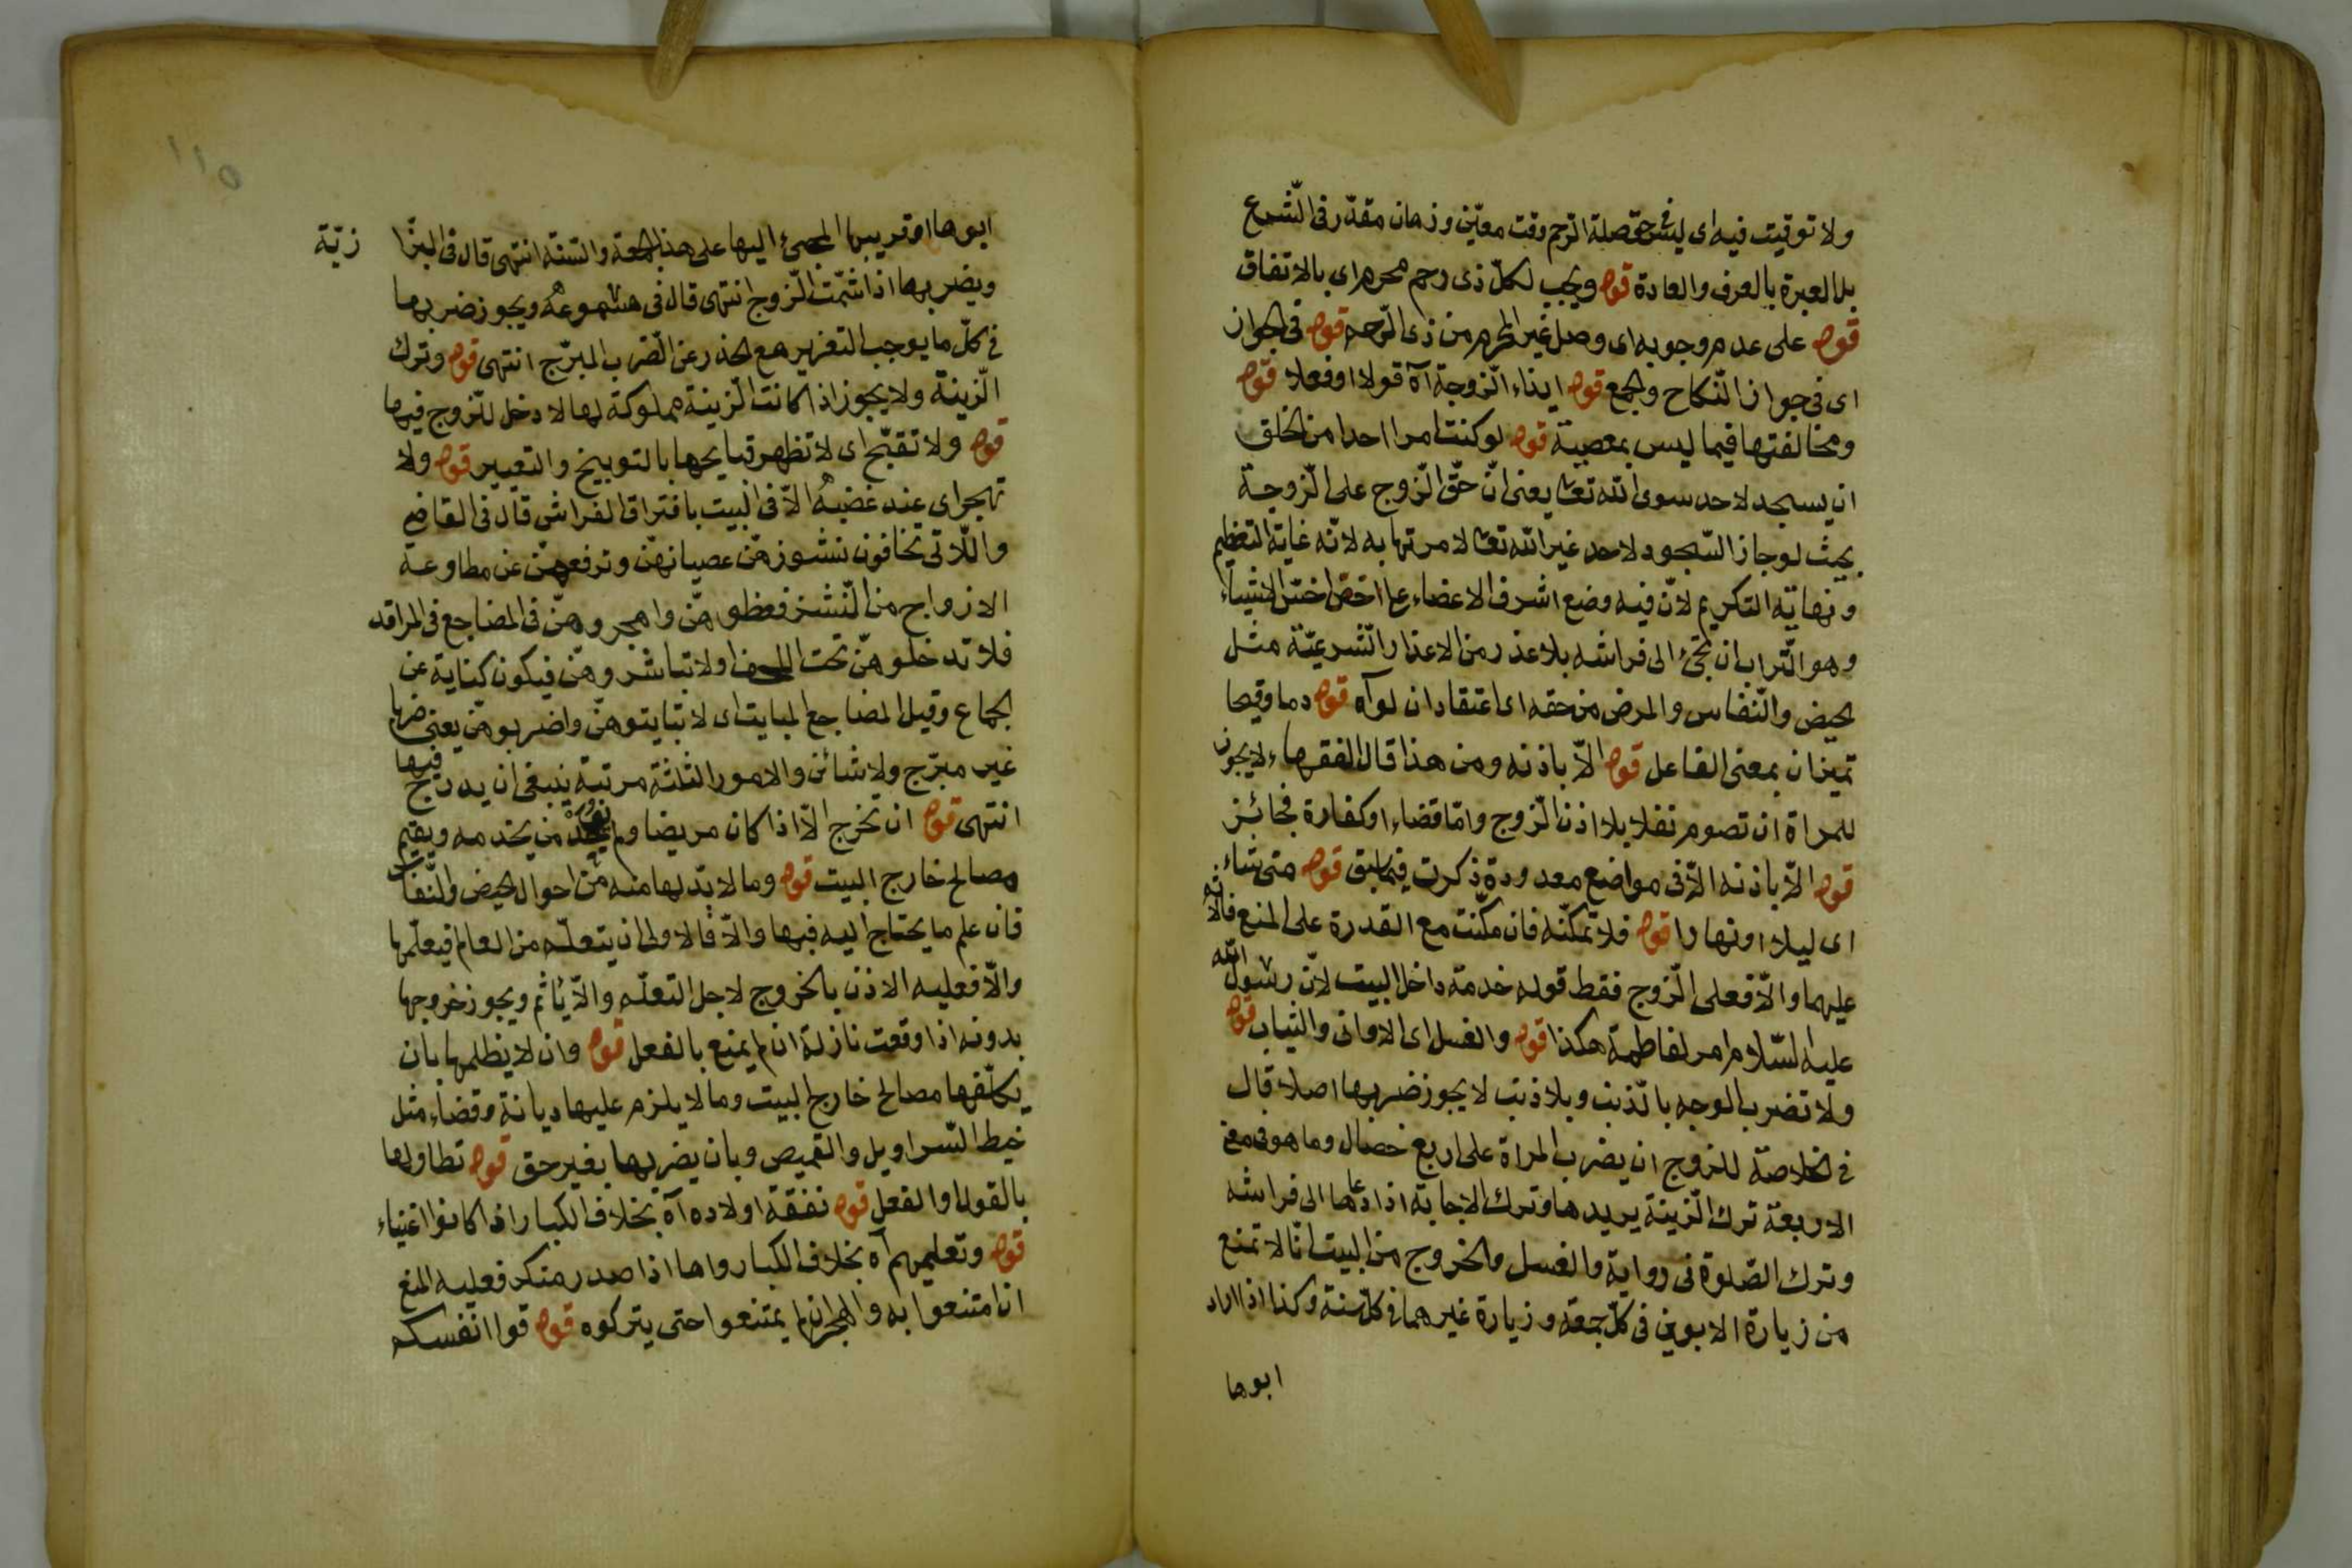 ولا توقيت فيه اى ليس فى حق صلة الرّحم وقت معيّن وزمان مقدّر فى الشّرع
بل العبرة بالعرف والعادة قوله ويجب لكلّ ذى رحم محرم اى بالاتفاق
قوله على عدم وجوبه اى وصل غير المحرم من ذى الرّحم قوله فى الجواز
اى فى جواز النّكاح والجمع قوله ايذاء الزوجة آه قولا او فعلا قوله
ومخالفتها فيما ليس بمعصية قوله لو كنت امرا احدا من الخلق
ان يسجد لاحد سوى الله تعا يعنى انّ حقّ الزّوج على الزّوجة
بحيث لو جاز السّجود لاحد غير الله تعا لامرتها به لانّه غاية التعظيم
ونهاية التكريم لانّ فيه وضع اشرف الاعضاء على اخسّ الاشياء
وهو التّراب ان تجئ الى فراشه بلا عذر من الاعذار الشّرعيّة مثل
الحيض والنّفاس والمرض من حقه اى اعتقاد ان لو آه قوله دما وقيحا
تميزان بمعنى الفاعل قوله الاّ باذنه ومن هذا قال الفقهاء لا يجوز
للمراة ان تصوم نفلا بلا اذن الزّوج وامّا قضاء او كفارة فجائز
قوله الاّ باذنه الاّ فى مواضع معدودة ذكرت فيما سبق قوله متى شاء
اى ليلا او نهارا قوله فلا تمكّنه فان مكّنت مع القدرة على المنع فالاثم
عليهما والاّ فعلى الزّوج فقط قوله خدمة داخل البيت لانّ رسول الله
عليه السّلام امر لفاطمة هكذا قوله والغسل اى الاوانى والثياب قوله
ولا تضرب الوجه بالذنب وبلا ذنب لا يجوز ضربها اصلا قال
فى الخلاصة للزوج ان يضرب المراة على اربع خصال وما هو فى معنى
الاربعة ترك الزّينة يريدها وترك الاجابة اذا دعاها الى فراشه
وترك الصّلوة فى رواية والغسل والخروج من البيت انّا لا تمنع
من زيارة الابوين فى كلّ جمعة وزيارة غيرهما فى كلّ سنة وكذا اذا اراد
ابوها
١١٥
ابوها او قريبها المجئ اليها على هذا الجمعة والسّنة انتهى قال فى البزّا زيّة
ويضربها اذا شتمت الزّوج انتهى قال فى مشموعه ويجوز ضربها
فى كلّ ما يوجب التعزير مع الحذر عن الضّرب المبرّج انتهى قوله وترك
الزّينة ولا يجوز اذا كانت الزّينة مملوكة لها لا دخل للزّوج فيها
قوله ولا تقبّح اى لا تظهر قبايحها بالتوبيخ والتعيير قوله ولا
تهجر اى عند غضبه الاّ فى البيت بافتراق الفراش قال فى القاضى
واللّاتى تخافون نشوزهنّ عصيانهنّ وترفعهنّ عن مطاوعة
الازواج من النّشز فعظوهنّ واهجروهنّ فى المضاجع فى المراقد
فلا تدخلوهنّ تحت اللحف اولا تباشروهنّ فيكون كناية عن
الجماع وقيل المضاجع المبايت اى لا تبايتوهنّ واضربوهنّ يعنى ضربا
غير مبرّج ولا شائن والامور الثلثة مرتبة ينبغى ان يدرج فيها
انتهى قوله ان تخرج الاّ اذا كان مريضا ولم يجد من يخدمه ويقيم
مصالح خارج البيت قوله وما لا بدّ لها منه من احوال الحيض والنّفاس
فان علم ما يحتاج اليه فبها والاّ فالاولى ان يتعلّمه من العالم فيعلّمها
والاّ فعليه الاذن بالخروج لاجل التعلّم والاّ ياثم ويجوز خروجها
بدونه اذا وقعت نازلة ان لم يمنع بالفعل قوله وان لا يظلمها بان
يكلّفها مصالح خارج البيت وما لا يلزم عليها ديانة وقضاء مثل
خيط السّراويل والقميص وبان يضربها بغير حق قوله تطاولها
بالقول او الفعل قوله نفقة اولاده آه بخلاف الكبار اذا كانوا اغنياء
قوله وتعليمهم آه بخلاف الكبار واما اذا صدر منكر فعليه المنع
ان امتنعوا به والهجران لم يمتنعوا حتى يتركوه قوله قوا انفسكم